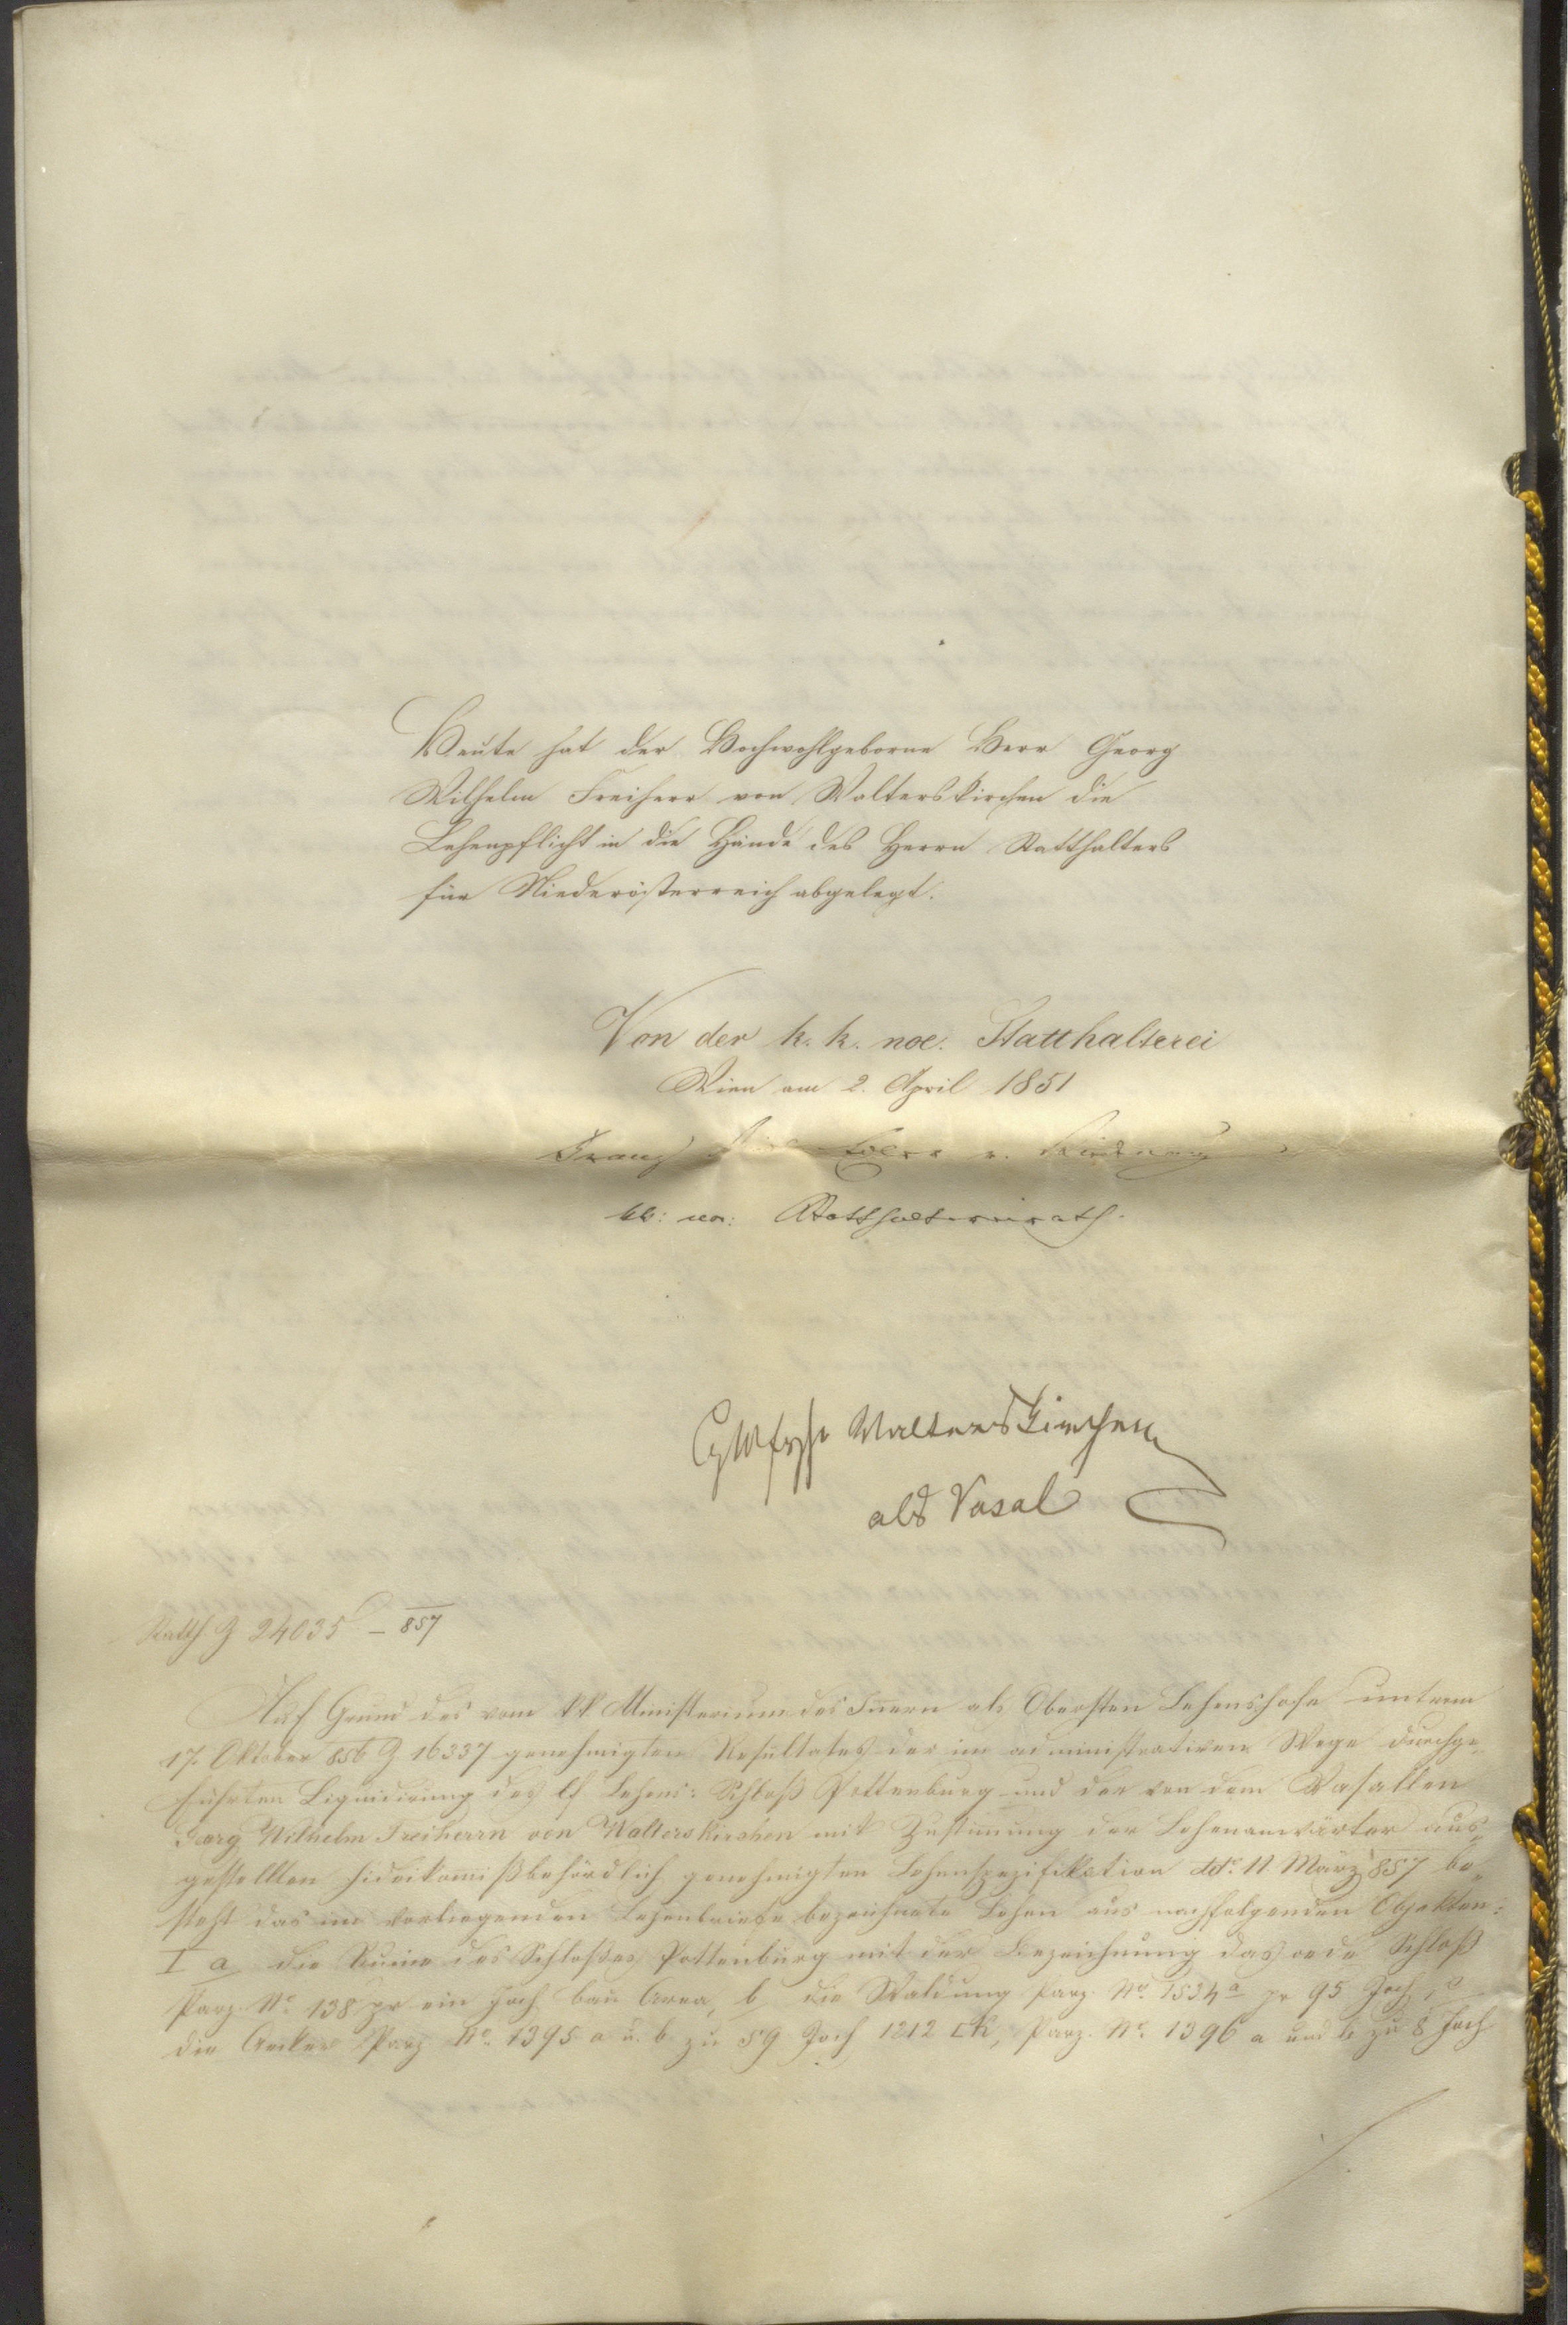 Heute hat der Hochwohlgeborne Herr Georg
Wilhelm Freiherr von Walterskirchen die
Lehenpflicht in die Hände des Herrn Statthalters
für Niederösterreich abgelegt.
Von der k. k. noe. Statthalterei
Wien am 2. April 1851
Franz
kk: no: Statthaltereirath.
Walterskirchen
als Vasal
Statth Z 24035 - 857
Auf Grund des vom kk Ministerium des Innern als Obersten Lehenshofe unterm
17. Oktober 856 Z 16337 genehmigten Resultates der im administrativen Wege durchge„
führten Liquidirung des lf Lehens: Schloß Pottenburg und der von dem Vasallen
Georg Wilhelm Freiherrn von Walterskirchen mit Zustimung der Lehenanwärter aus„
gestellten fideikomißbehördlich genehmigten Lehenspezifikation ddo. 11. März 857 be„
steht das im vorliegenden Lehenbriefe bezeichnete Lehen aus nachfolgenden Objekten:
I a die Ruine des Schloßes Pottenburg mit der Bezeichnung das oede Schloß
Parz. No. 138 pr ein Joch bau Area, b die Waldung Parz. No. 1534a pr 95 Joch, c
die Aecker Parz No. 1395 a u. b zu 59 Joch 1212 □K, Parz. No. 1396 a und b zu 8 Joch